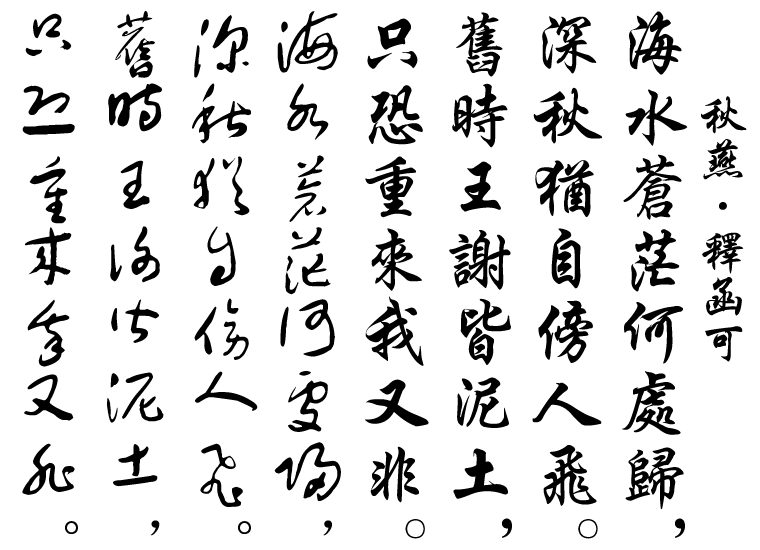 秋燕·釋函可
海水蒼茫何處歸，
深秋猶自傍人飛。
舊時王謝皆泥土，
只恐重來我又非。
海水蒼茫何處歸，
深秋猶自傍人飛。
舊時王謝皆泥土，
只恐重來我又非。